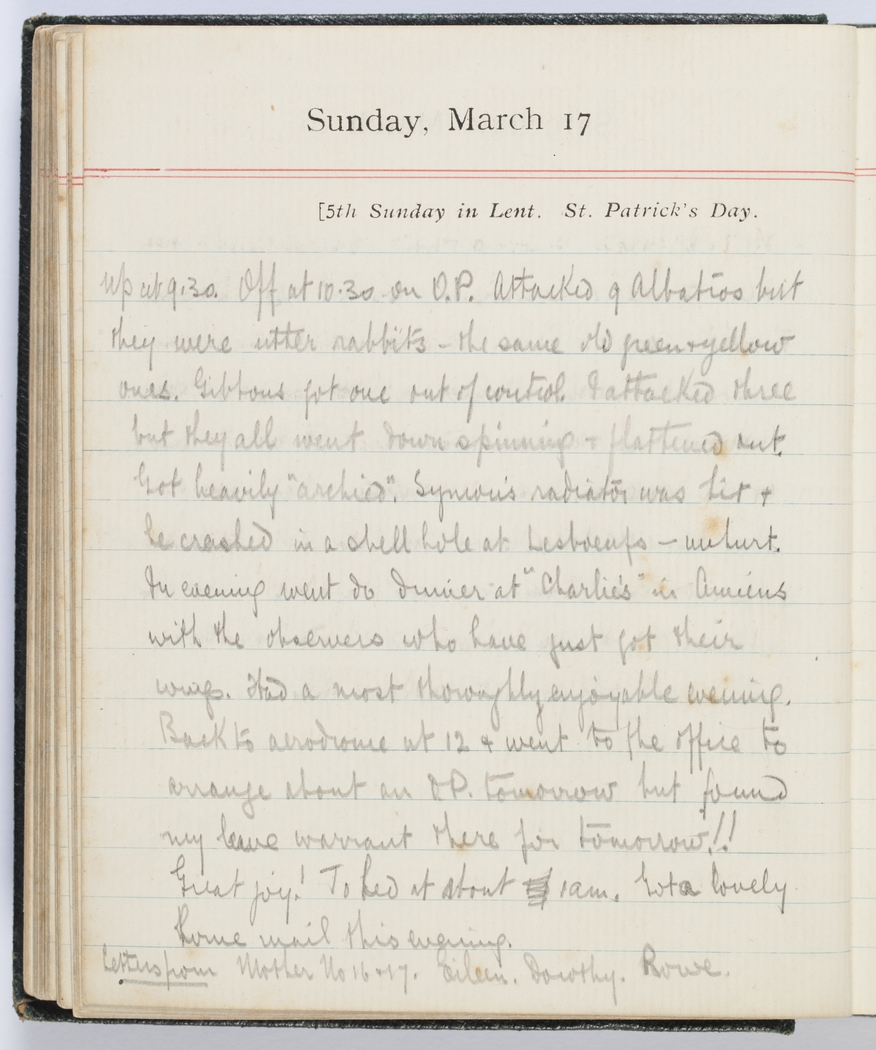 Sunday, March 17
[5th Sunday in Lent. St. Patrick's Day.
Up at 9.30. Off at 10.30 on O.P. Attacked 9 Albatros but
they were utter rabbits - the same old green & yellow
ones. Gibbons got one out of control. I attacked three
but they all went down spinning & flattened out.
Got heavily "archied". Symon's radiator was hit &
he crashed in a shell hole at Lesboeufs - unhurt.
In evening went do dinner at "Charlie's" in Amiens
with the observers who have just got their
wings. Had a most thoroughly enjoyable evening.
Back to aerodrome at 12 & went to the office to
arrange about an O.P. tomorrow but found
my leave warrant there for tomorrow!!
Great joy! To bed at about 1am. Got a lovely
home mail this evening.
Letters from Mother No 16 & 17. Eileen. Dorothy. Rowe.